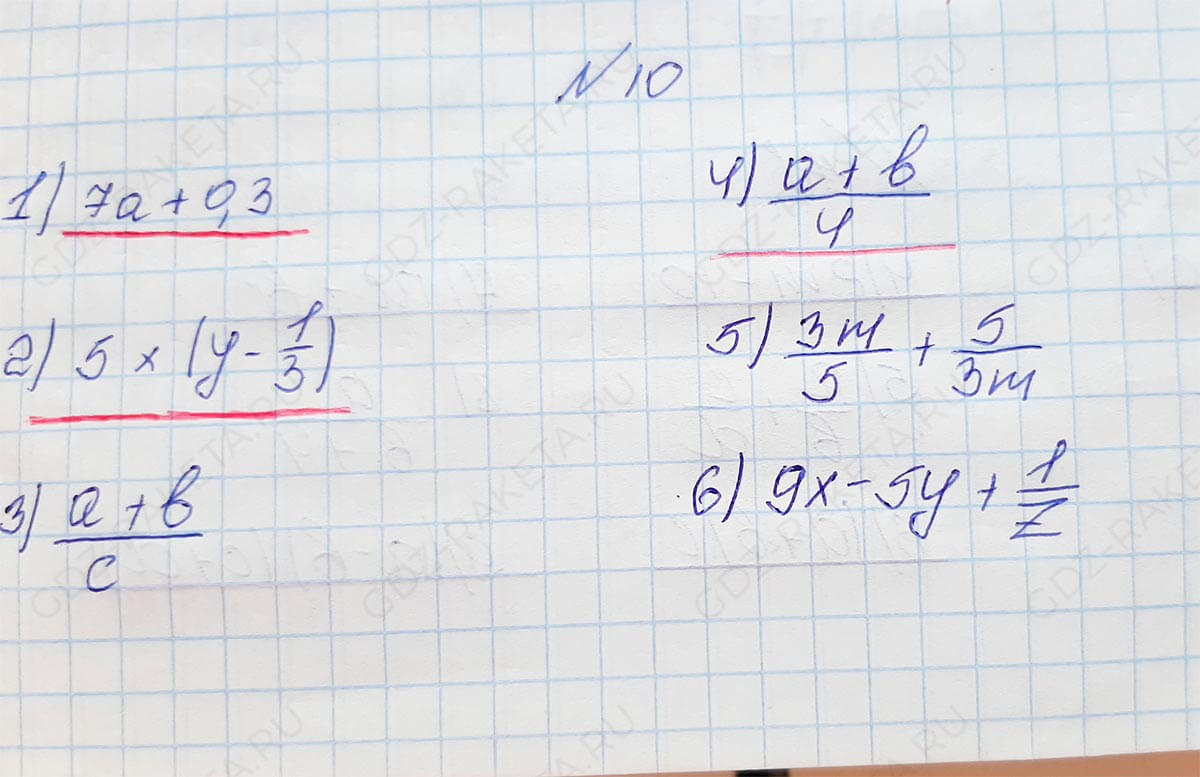 № 10
1) 7a + 0,3
2) 5 × (y - 1/3)
3) a + b / c
4) a + b / 4
5) 3m/5 + 5/3m
6) 9x - 5y + 1/z
GDZ-RAKETA.RU